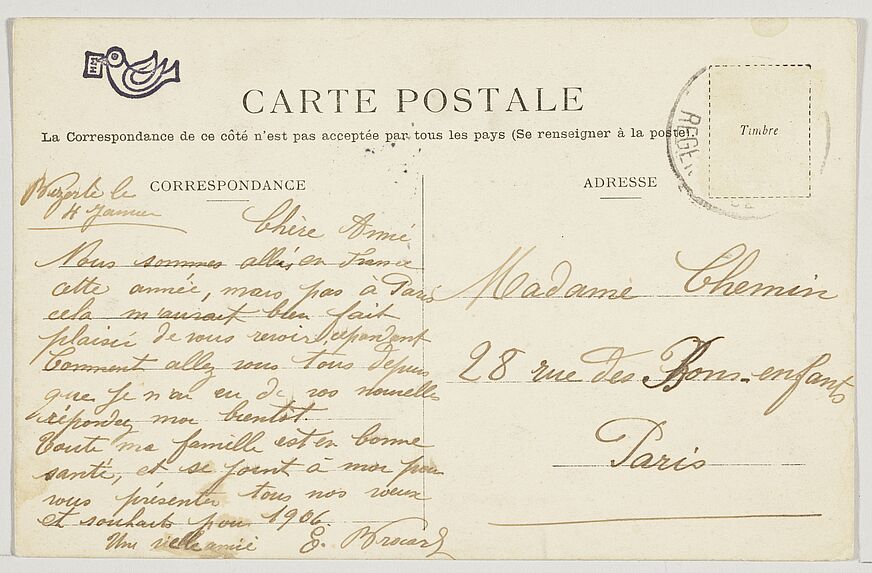 CARTE POSTALE
La Correspondance de ce côté n'est pas acceptée par tous les pays (Se renseigner à la poste).
Timbre
REGEN
CORRESPONDANCE
ADRESSE
Bizerte le
4 Janvier
Chère Amie
Nous sommes allés en France
cette année, mais pas à Paris
cela m'aurait bien fait
plaisir de vous revoir, cependant
Comment allez vous tous depuis
que je n'ai eu de vos nouvelles
répondez moi bientot.
Toute ma famille est en bonne
santé, et se joint à moi pour
vous présenter tous nos voeux
et souhaits pour 1906.
Une vieille amie E. Brocard
Madame Chemin
28 rue des Bons-enfants
Paris